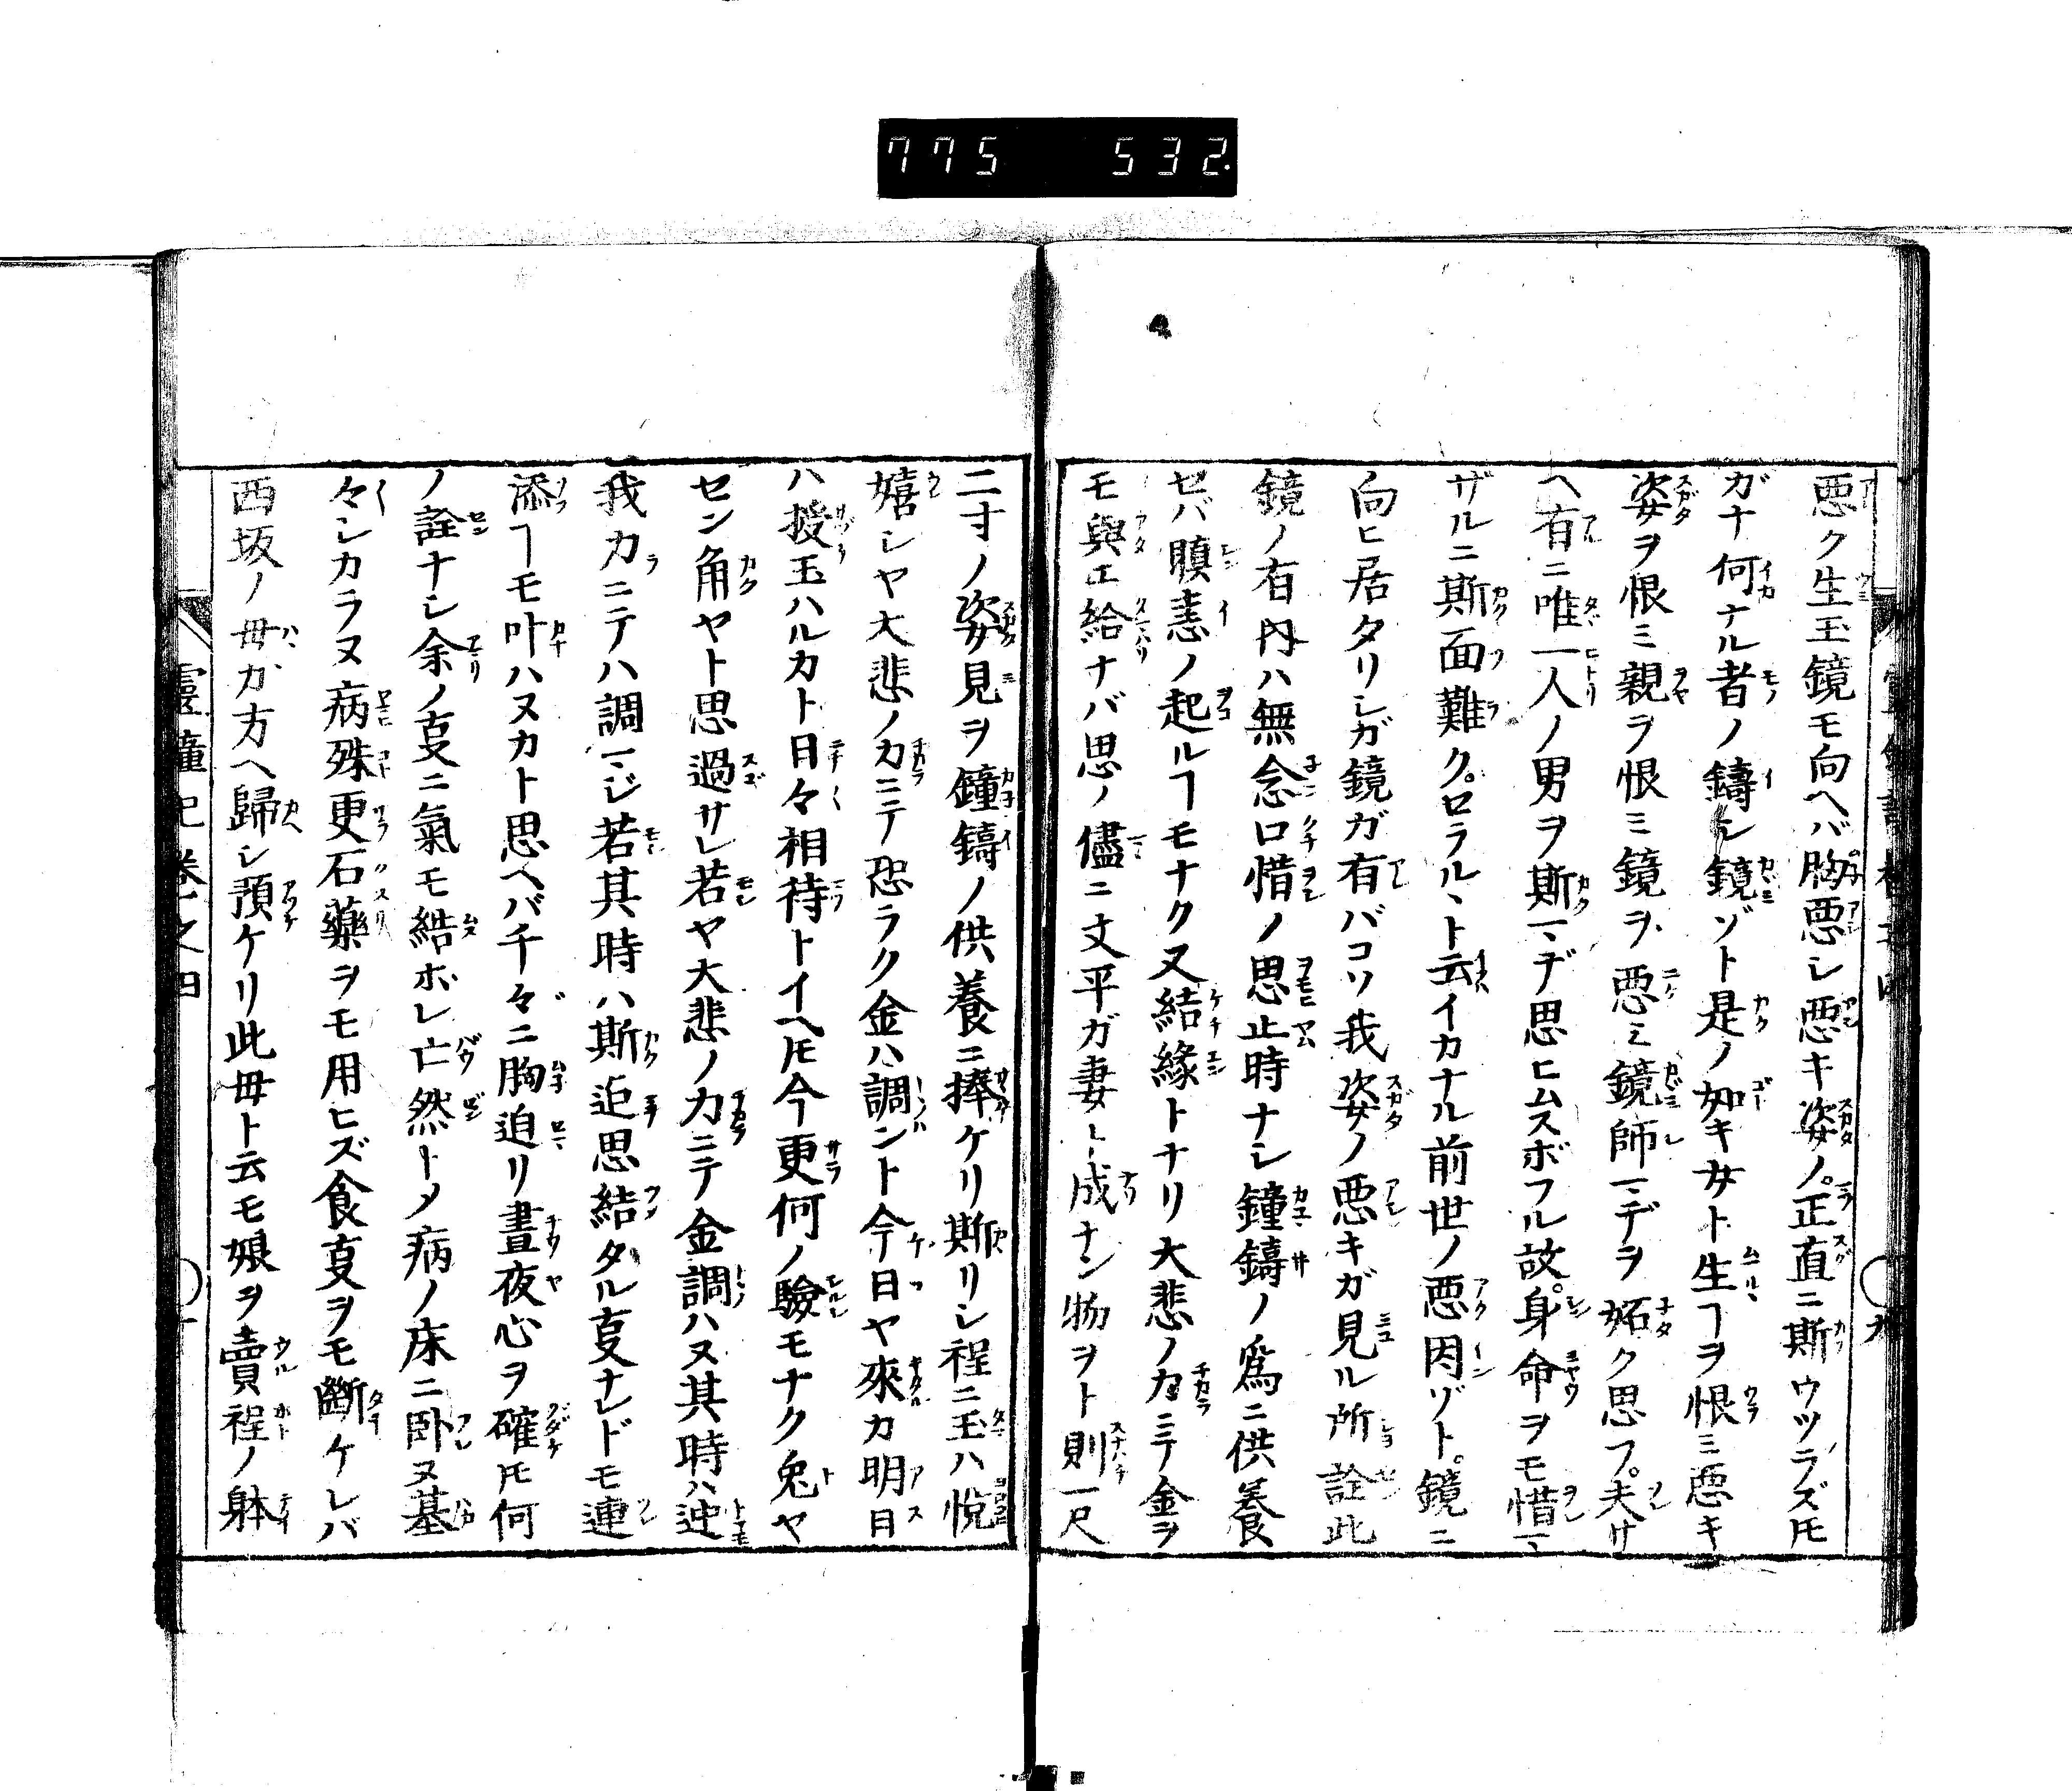 775 532
悪ク生玉鏡モ向ヘバ胸悪シ悪キ姿ノ正直ニ斯ウツラズ𪜈
ガナ何ナル者ノ鑄シ鏡ゾト是ノ如キ女ト生ヿヲ恨ミ悪キ
姿ヲ恨ミ親ヲ恨ミ鏡ヲ悪ミ鏡師マデヲ妬ク思フ夫サ
ヘ有ニ唯一人ノ男ヲ斯マデ思ヒムスボフル故身命ヲモ惜マ
ザルニ斯面難クロラルヽト云イカナル前世ノ悪因ゾト鏡ニ
向ヒ居タリシガ鏡ガ有バコソ我姿ノ悪キガ見ル所詮此
鏡ノ有内ハ無念口惜ノ思止時ナシ鐘鑄ノ爲ニ供養
セバ瞋恚ノ起ルヿモナク又結緣トナリ大悲ノ力ニテ金ヲ
モ與エ給ナバ思ノ儘ニ丈平ガ妻ト成ナン物ヲト則一尺
二寸ノ姿見ヲ鐘鑄ノ供養ニ捧ケリ斯リシ程ニ玉ハ悅
嬉シヤ大悲ノ力ニテ恐ラク金ハ調ント今日ヤ來カ明日
ハ授玉ハルカト日々相待トイヘ𪜈今更何ノ驗モナク兔ヤ
セン角ヤト思過サレ若ヤ大悲ノ力ニテ金調ハヌ其時ハ迚
我力ニテハ調マジ若其時ハ斯迄思結タル㕝ナレドモ連
添ヿモ叶ハヌカト思ヘバ千々ニ胸迫リ晝夜心ヲ確𪜈何
ノ詮ナシ余ノ㕝ニ氣モ結ボレ亡然トメ病ノ床ニ卧ヌ墓
々シカラヌ病殊更石藥ヲモ用ヒズ食㕝ヲモ斷ケレバ
西坂ノ母カ方ヘ歸シ預ケリ此母ト云モ娘ヲ賣程ノ躰
靈鐘記卷之四